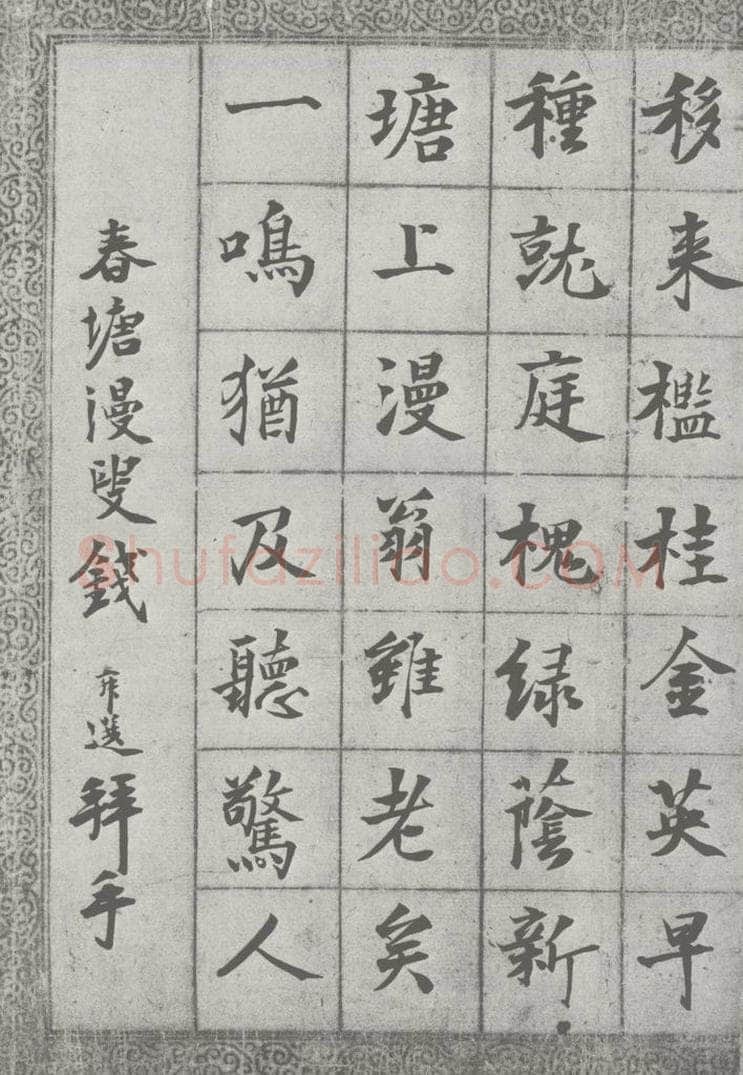 移来檻桂金英早
種就庭槐緑蔭新
塘上漫翁雖老矣
一鳴猶及聽驚人
春塘漫叟錢 選拜手
shufaziliao.COM